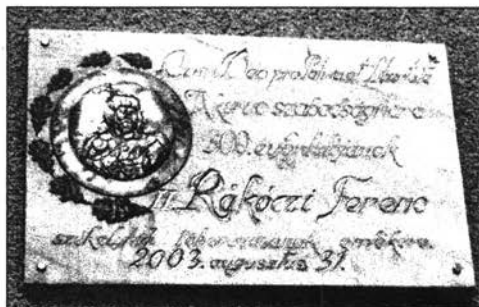 Cum Deo pro Patria et Libertate
A kuruc szabadságharc
300. évfordulójának
II. Rákóczi Ferenc
táborozásának emlékére.
2003. augusztus 31.